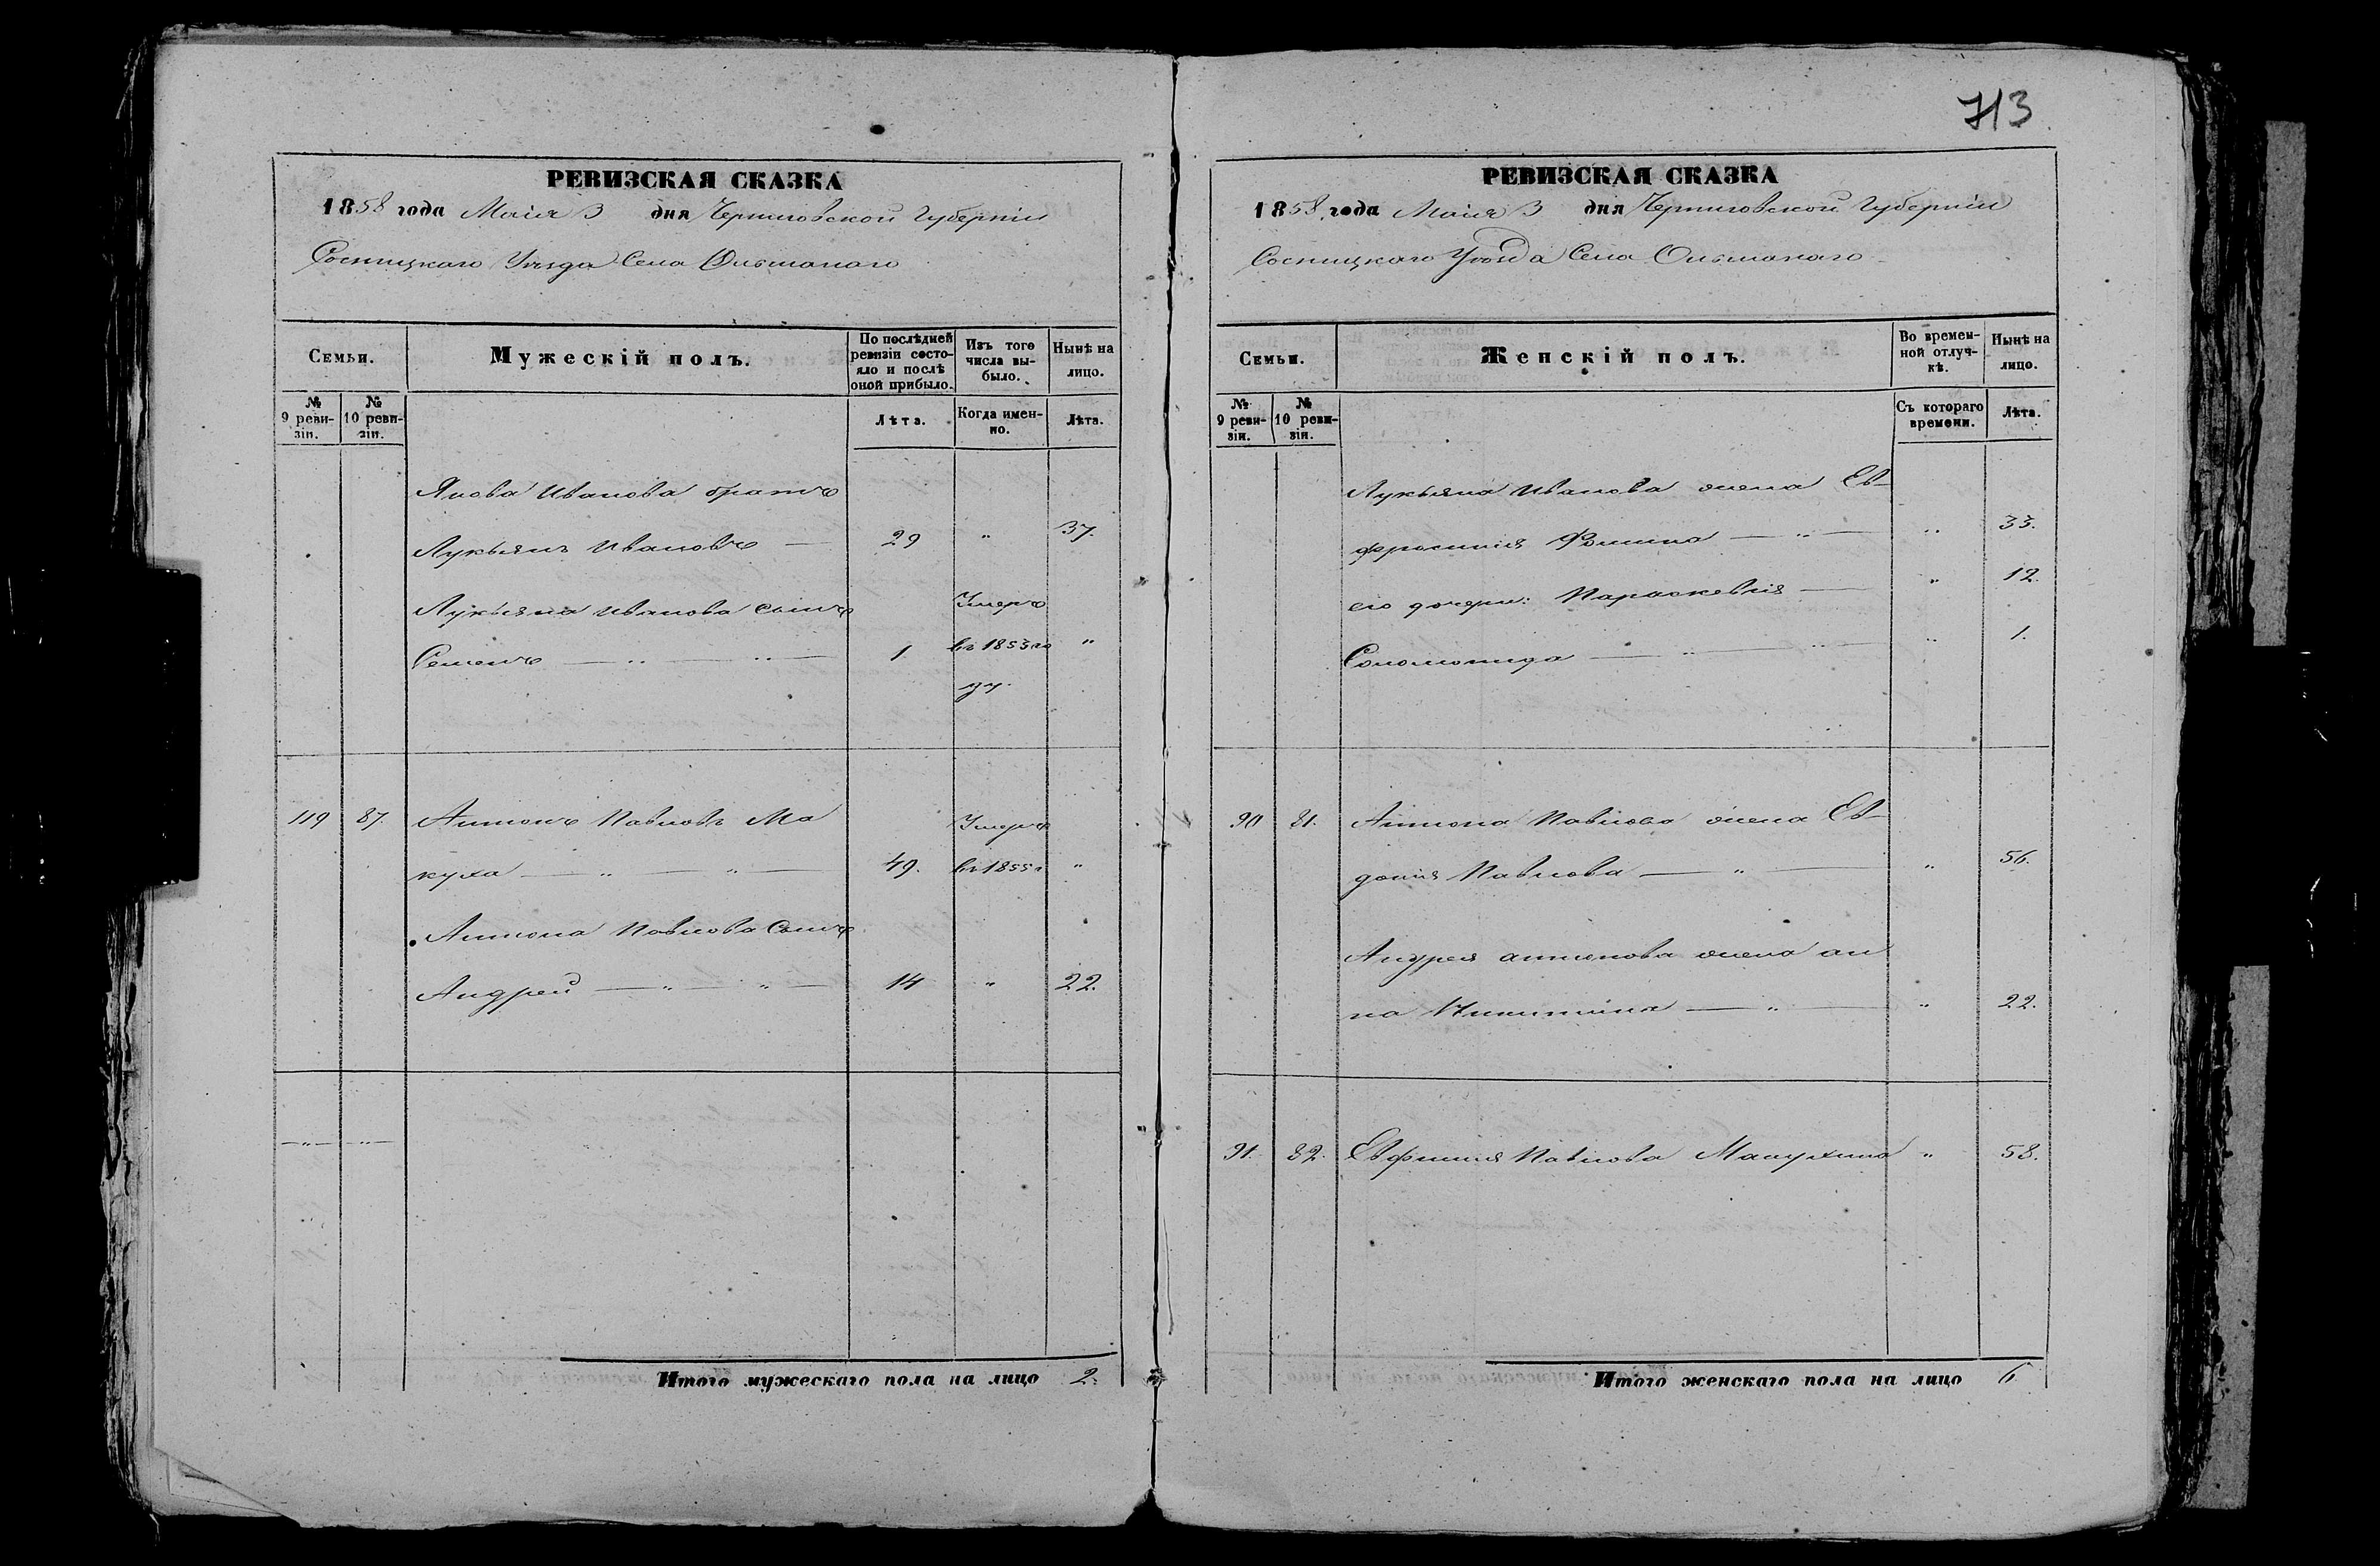 713
РЕВИЗСКАЯ СКАЗКА
1858 года Маія 3 дня Черниговской Губерніи
Сосницкаго Уезда Села Ольшанаго
Семьи.
Мужескій полъ.
По послѣдней ревизіи состояло и послѣ оной прибыло.
Изъ того числа выбыло.
Нынѣ на лицо.
№ 9 ревизіи.
№ 10 ревизіи.
Лѣта.
Когда именно.
Лѣта.
Якова Иванова братъ
Лукьянъ Ивановъ — 29 " 37.
Лукьяна Иванова сынъ Умеръ
Семенъ — " — " — 1. въ 1853 го "
ду
119 87. Антонъ Павловъ Ма Умеръ
куха — " — " — 49. въ 1855 г "
Антона Павлова Сынъ
Андрей — " — " — 14 " 22.
— " — — " —
Итого мужескаго пола на лицо 2.
РЕВИЗСКАЯ СКАЗКА
1858 года Маія 3 дня Черниговской Губерніи
Сосницкаго Уезда Села Ольшанаго
Семьи.
Женскій полъ.
Во временной отлучкѣ.
Нынѣ на лицо.
№ 9 ревизіи.
№ 10 ревизіи.
Съ котораго времени.
Лѣта.
Лукьяна Иванова жена Ев-
фросинія Фомина — " — " 33.
его дочери: Параскевія — " 12.
Соломонида — " — " — " 1.
90 81. Антона Павлова жена Ев-
докія Павлова — " — " 56.
Андрея антонова жена ан
на Никитина — " — " 22.
91. 82. Евфимія Павлова Макухина " 58.
Итого женскаго пола на лицо 6